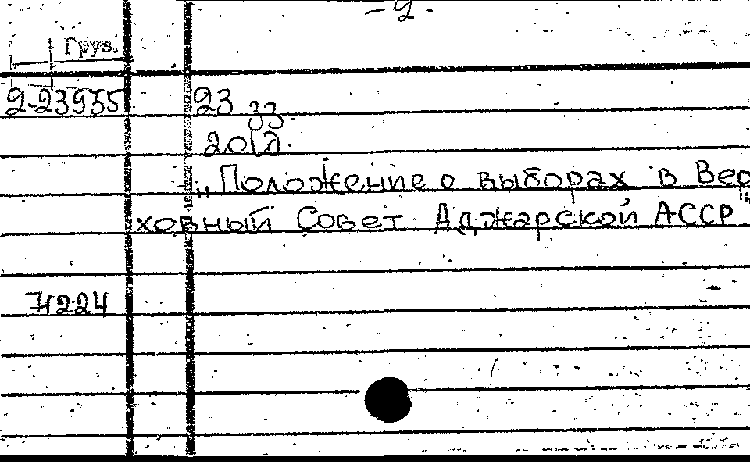 - 2 -
Груз.
2-23935 23 გვ.
20სმ.
„Положение о выборах в Вер
ховный Совет Аджарской АССР"
7224